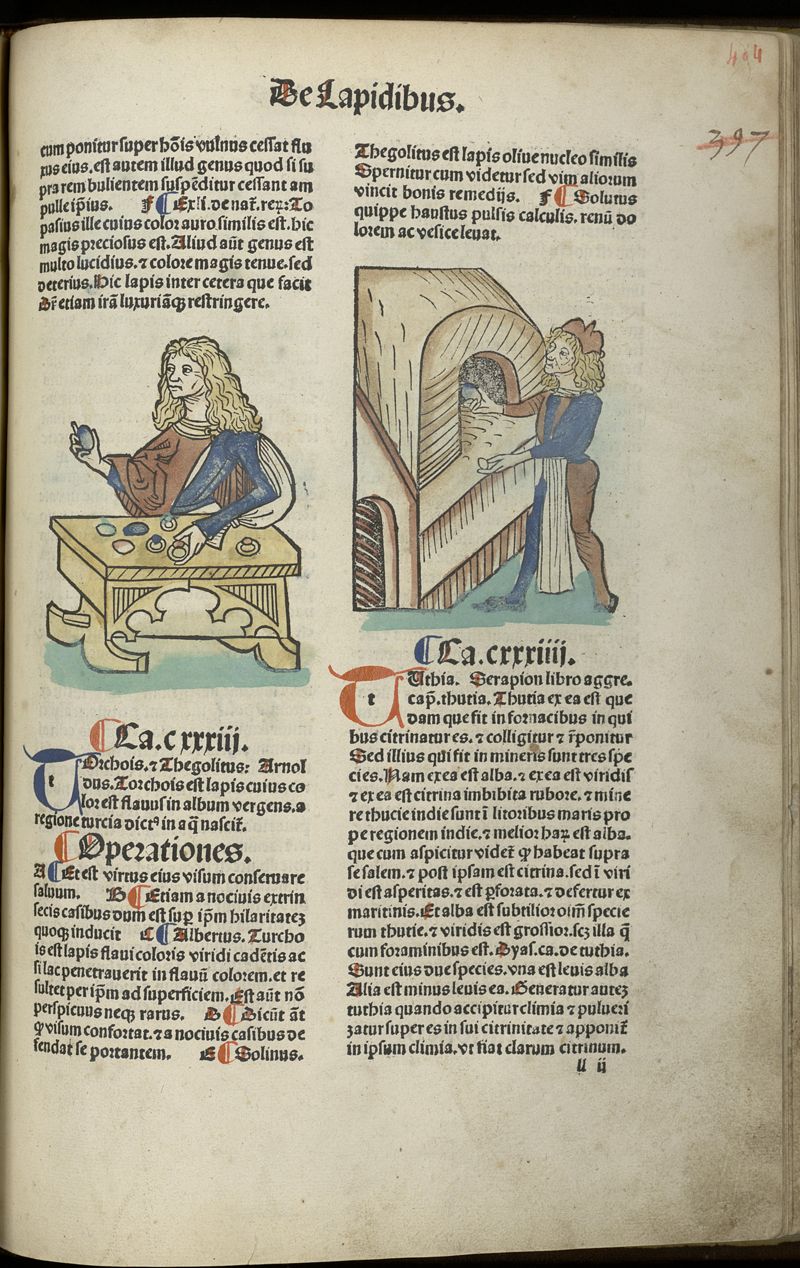 404
397
De Lapidibus.
cum ponitur super hoı̄s vulnus cessat flu
xus eius. est autem illud genus quod si su
pra rem bulientem suspēditur cessant am
pulle ip̄ius. F ¶ Ex li. de nat. reꝝ: To
pasius ille cuius color auro similis est. hic
magis preciosus est. Aliud aūt genus est
multo lucidius. ⁊ colore magis tenue. sed
deterius. Hic lapis inter cetera que facit
Dr̄ etiam irā luxuriāqꝫ restringere.
¶ Ca. cxxxiij.
TOrchois. ⁊ Thegolitus: Arnol
dus. Torchois est lapis cuius co
lor est flauus in album vergens. a
regione turcia dictꝰ in a q̄ nascit̄.
¶ Operationes.
A ¶ Et est virtus eius visum conseruare
saluum. B ¶ Etiam a nociuis extrin
secis casibus dum est suꝑ ip̄m hilaritateꝫ
quoqꝫ inducit C ¶ Albertus. Turcho
is est lapis flaui coloris viridi cadētis ac
si lac penetrauerit in flauū colorem. et re
sultet per ip̄m ad superficiem. Est aūt nō
perspicuus neqꝫ rarus. D ¶ Dicūt āt
ꝙ visum confortat. ⁊ a nociuis casibus de
fendat se portantem. E ¶ Solinus.
Thegolitus est lapis oliue nucleo similis
Spernitur cum videtur sed vim aliorum
vincit bonis remedijs. F ¶ Solutus
quippe haustus pulsis calculis. renū do
lorem ac vesice leuat.
¶ Ca. cxxxiiij.
TUthia. Serapion libro aggre.
cap̄. thutia. Thutia ex ea est que
dam que fit in fornacibus in qui
bus citrinatur es. ⁊ colligitur ⁊ r̄ponitur
Sed illius qui fit in mineris sunt tres spe
cies. Nam ex ea est alba. ⁊ ex ea est viridis
⁊ ex ea est citrina imbibita rubore. ⁊ mine
re thucie indie sunt ī litoribus maris pro
pe regionem indie. ⁊ melior haꝝ est alba.
que cum aspicitur videt̄ ꝙ habeat supra
se salem. ⁊ post ipsam est citrina. sed ī viri
di est asperitas. ⁊ est ꝑforata. ⁊ defertur ex
maritinis. Et alba est subtilior oīm specie
rum thutie. ⁊ viridis est grossior. scꝫ illa q̄
cum foraminibus est. Dyas. ca. de tuthia.
Sunt eius due species. vna est leuis alba
Alia est minus leuis ea. Generatur auteꝫ
tuthia quando accipitur climia ⁊ pulueri
zatur super es in sui citrinitate ⁊ apponit̄
in ipsum climia. vt fiat clarum citrinum.
ll ij